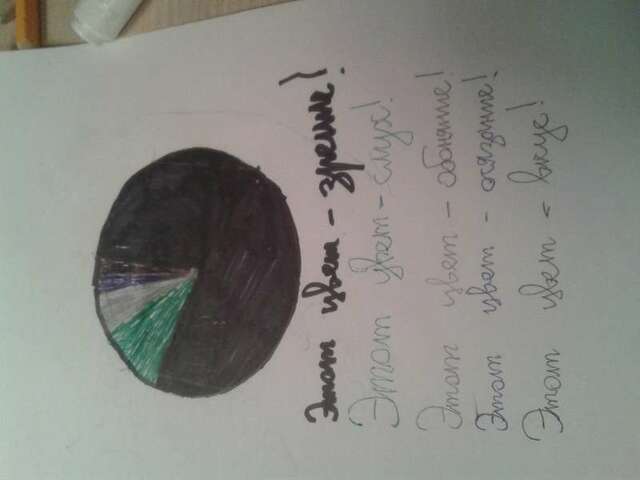 Этот цвет - зрение!
Этот цвет - слух!
Этот цвет - обоняние!
Этот цвет - осязание!
Этот цвет - вкус!